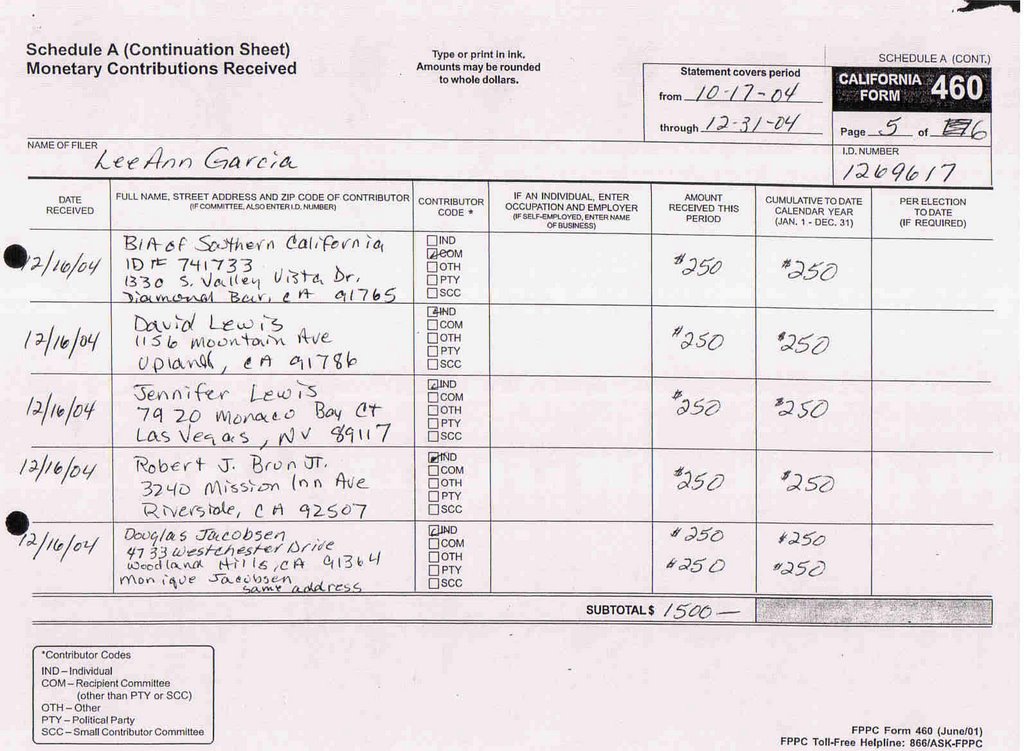 Schedule A (Continuation Sheet)
Monetary Contributions Received
Type or print in ink.
Amounts may be rounded
to whole dollars.
SCHEDULE A (CONT.)
Statement covers period
from 10-17-04
through 12-31-04
CALIFORNIA
FORM 460
Page 5 of 6
NAME OF FILER
LeeAnn Garcia
I.D. NUMBER
1269617
DATE
RECEIVED
FULL NAME, STREET ADDRESS AND ZIP CODE OF CONTRIBUTOR
(IF COMMITTEE, ALSO ENTER I.D. NUMBER)
CONTRIBUTOR
CODE *
IF AN INDIVIDUAL, ENTER
OCCUPATION AND EMPLOYER
(IF SELF-EMPLOYED, ENTER NAME
OF BUSINESS)
AMOUNT
RECEIVED THIS
PERIOD
CUMULATIVE TO DATE
CALENDAR YEAR
(JAN. 1 - DEC. 31)
PER ELECTION
TO DATE
(IF REQUIRED)
12/16/04
BIA of Southern California
ID# 741733
1330 S. Valley Vista Dr.
Diamond Bar, CA 91765
IND
COM
OTH
PTY
SCC
$250
$250
12/16/04
David Lewis
1156 Mountain Ave
Upland, CA 91786
IND
COM
OTH
PTY
SCC
$250
$250
12/16/04
Jennifer Lewis
7920 Monaco Bay Ct
Las Vegas, NV 89117
IND
COM
OTH
PTY
SCC
$250
$250
12/16/04
Robert J. Brun Jr.
3240 Mission Inn Ave
Riverside, CA 92507
IND
COM
OTH
PTY
SCC
$250
$250
12/16/04
Douglas Jacobsen
4733 Westchester Drive
Woodland Hills, CA 91364
Monique Jacobsen
same address
IND
COM
OTH
PTY
SCC
$250
$250
$250
$250
SUBTOTAL $ 1500—
*Contributor Codes
IND – Individual
COM – Recipient Committee
(other than PTY or SCC)
OTH – Other
PTY – Political Party
SCC – Small Contributor Committee
FPPC Form 460 (June/01)
FPPC Toll-Free Helpline: 866/ASK-FPPC